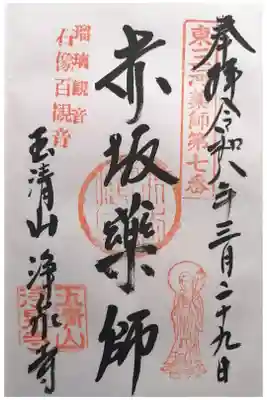 奉拝 令和八年三月二十九日
東三河薬師第七番
赤坂薬師
瑠璃観音
石像百観音
玉清山 浄泉寺
玉青山
浄泉寺